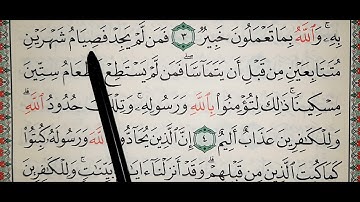 بِهِۦ ۚ وَٱللَّهُ بِمَا تَعْمَلُونَ خَبِيرٌ ٣ فَمَن لَّمْ يَجِدْ فَصِيَامُ شَهْرَيْنِ
مُتَتَابِعَيْنِ مِن قَبْلِ أَن يَتَمَآسَّا ۖ فَمَن لَّمْ يَسْتَطِعْ فَإِطْعَامُ سِتِّينَ
مِسْكِينًا ۚ ذَٰلِكَ لِتُؤْمِنُوا۟ بِٱللَّهِ وَرَسُولِهِۦ ۚ وَتِلْكَ حُدُودُ ٱللَّهِ ۗ
وَلِلْكَٰفِرِينَ عَذَابٌ أَلِيمٌ ٤ إِنَّ ٱلَّذِينَ يُحَآدُّونَ ٱللَّهَ وَرَسُولَهُۥ كُبِتُوا۟
كَمَا كُبِتَ ٱلَّذِينَ مِن قَبْلِهِمْ ۚ وَقَدْ أَنزَلْنَآ ءَايَٰتٍۭ بَيِّنَٰتٍ ۚ وَلِلْكَٰفِرِينَ